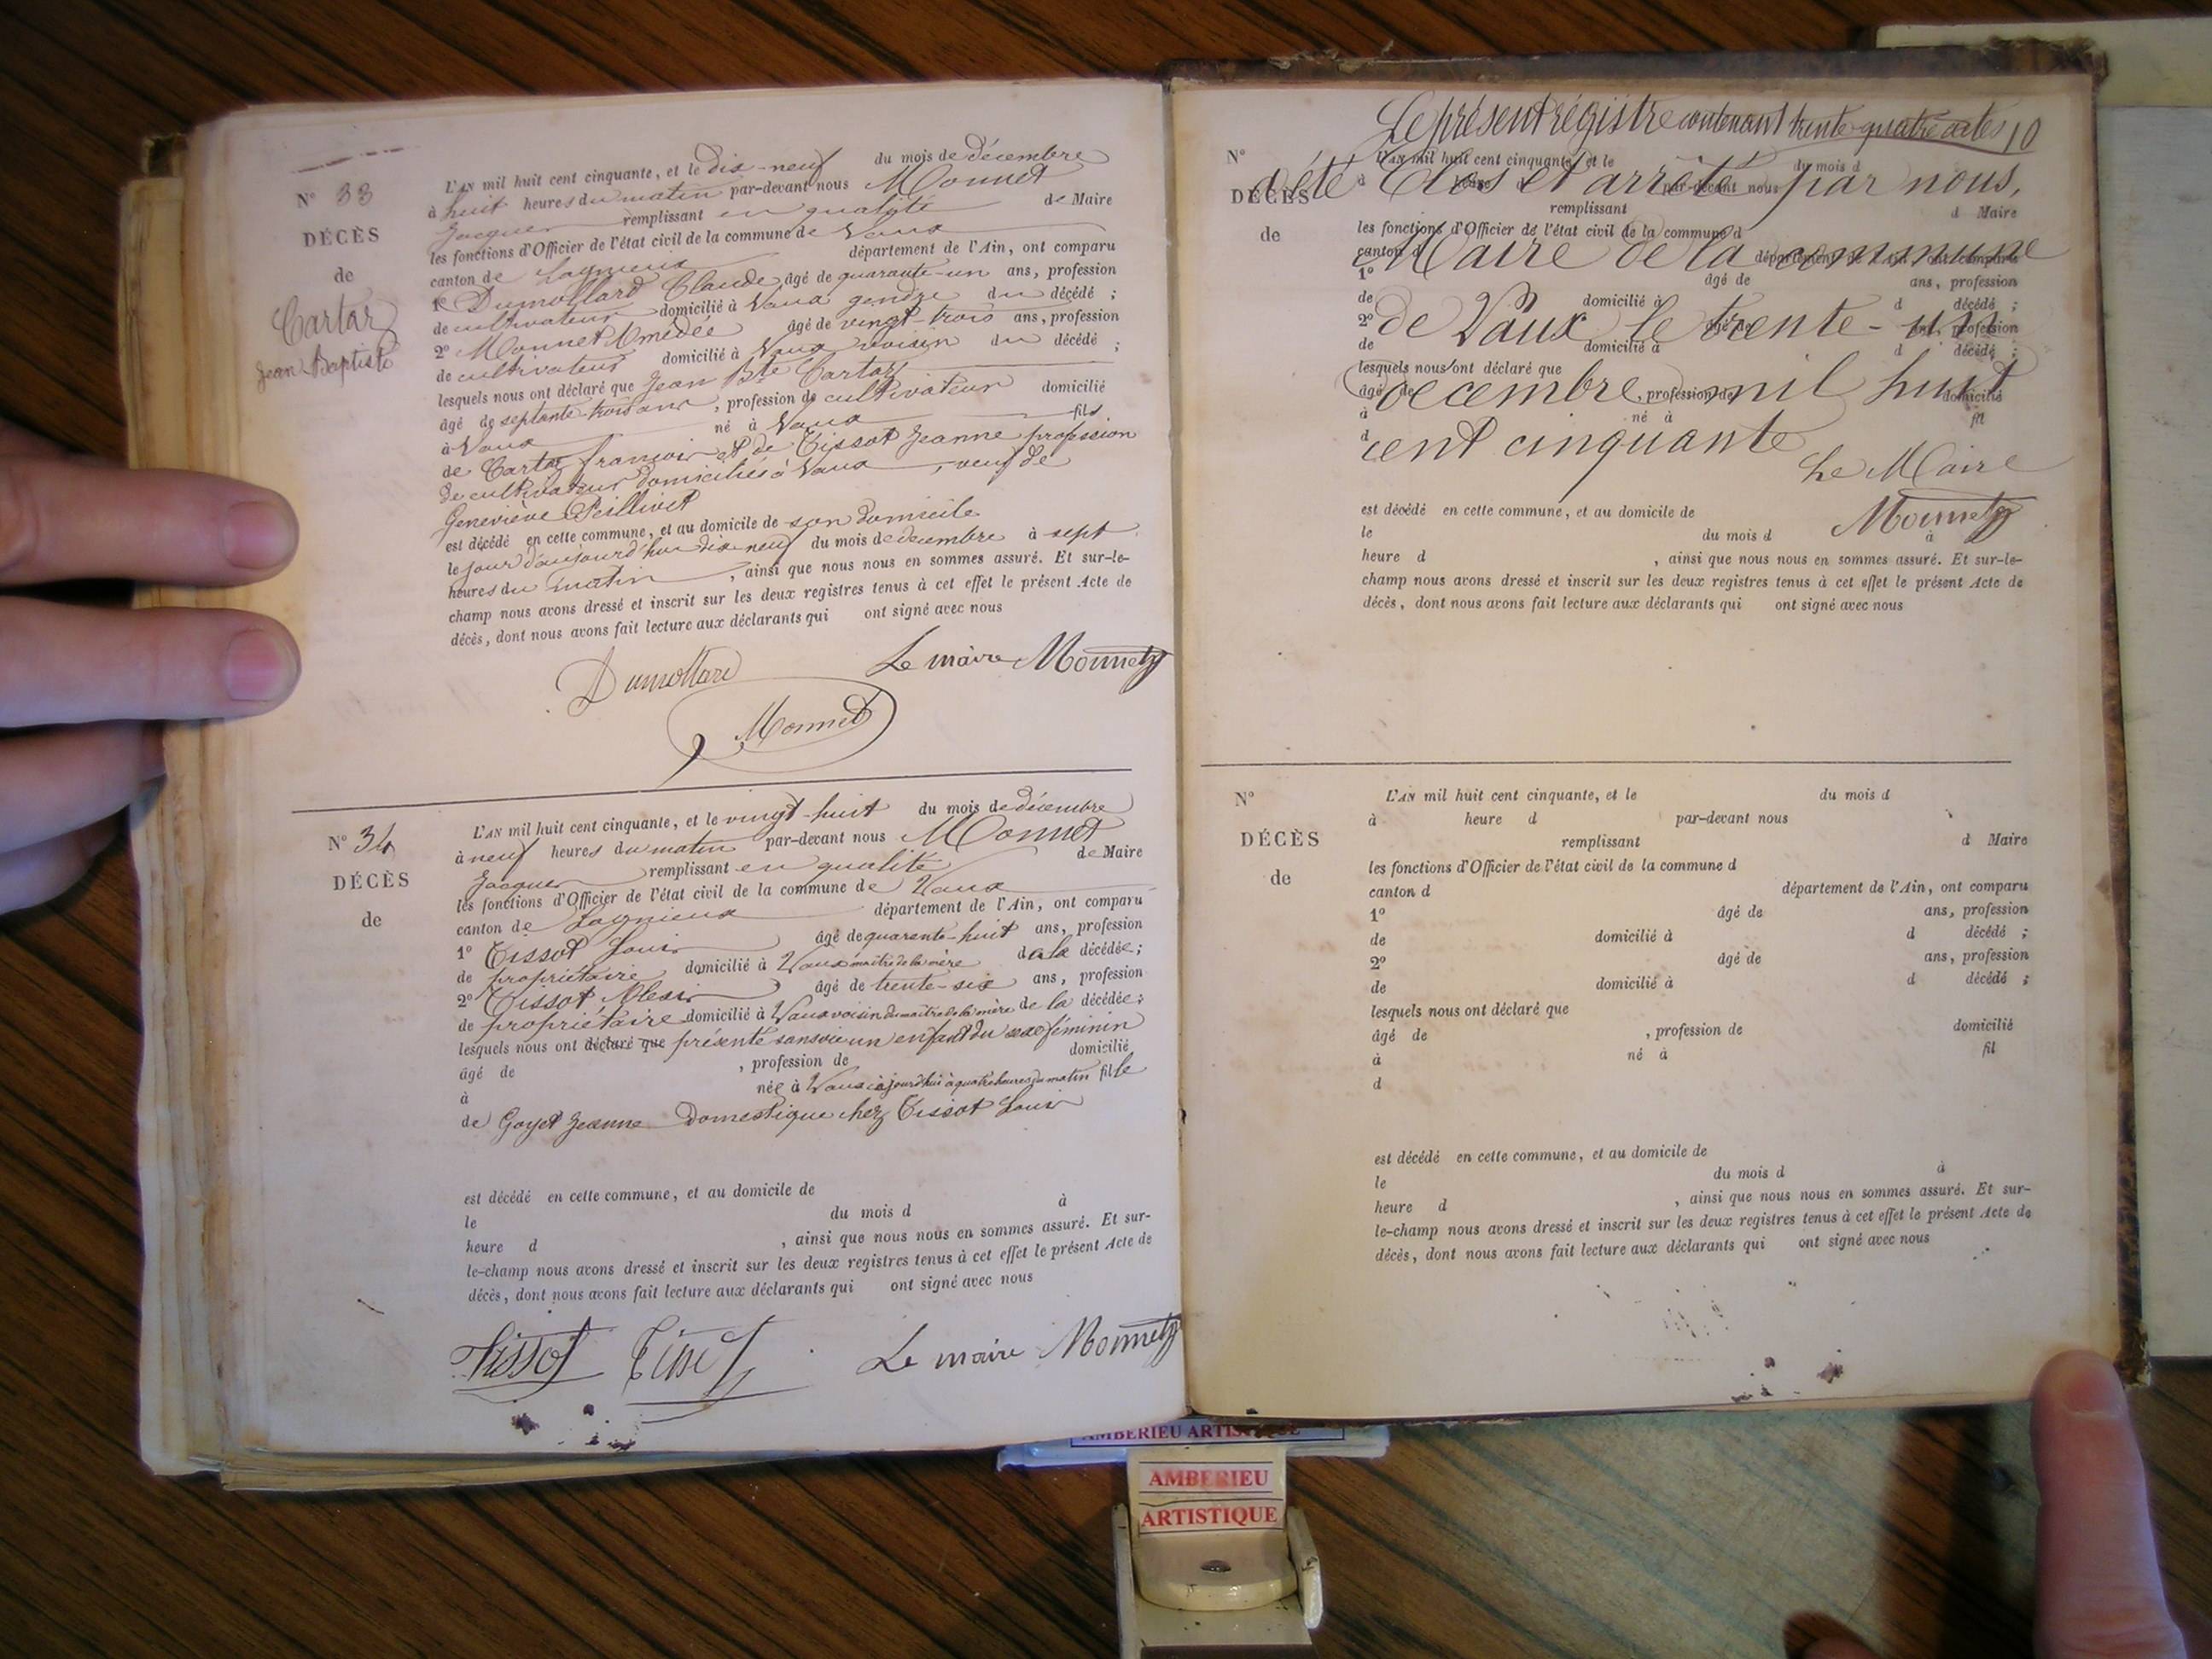 N° 33
DÉCÈS
de
Cartaz
Jean Baptiste
L'AN mil huit cent cinquante, et le dix-neuf du mois de décembre
à huit heures du matin par-devant nous Monnet
Jacques remplissant en qualité de Maire
les fonctions d'Officier de l'état civil de la commune de Vaux
canton de Lagnieux département de l'Ain, ont comparu
1° Dumollard Claude âgé de quarante-un ans, profession
de cultivateur domicilié à Vaux gendre du décédé ;
2° Monnet Amédée âgé de vingt-trois ans, profession
de cultivateur domicilié à Vaux voisin du décédé ;
lesquels nous ont déclaré que Jean Bte Cartaz
âgé de septante-trois ans, profession de cultivateur domicilié
à Vaux né à Vaux fils
de Cartaz françois et de Tissot Jeanne profession
de cultivateur domiciliés à Vaux, veuf de
Geneviève Peillivet
est décédé en cette commune, et au domicile de son domicile
le jour d'aujourd'hui dix-neuf du mois de decembre à sept
heures du matin, ainsi que nous nous en sommes assuré. Et sur-le-
champ nous avons dressé et inscrit sur les deux registres tenus à cet effet le présent Acte de
décès, dont nous avons fait lecture aux déclarants qui ont signé avec nous
Dumollard Le maire Monnet
Monnet
N° 34
DÉCÈS
de
L'AN mil huit cent cinquante, et le vingt-huit du mois de décembre
à neuf heures du matin par-devant nous Monnet
Jacques remplissant en qualité de Maire
les fonctions d'Officier de l'état civil de la commune de Vaux
canton de Lagnieux département de l'Ain, ont comparu
1° Tissot Louis âgé de quarente-huit ans, profession
de propriétaire domicilié à Vaux maître de la mère de la décédée ;
2° Tissot Alexis âgé de trente-six ans, profession
de propriétaire domicilié à Vaux voisin du maître de la mère de la décédée ;
lesquels nous ont déclaré que présenté sans vie un enfant du sexe féminin
âgé de , profession de domicilié
à née à Vaux aujourd'hui à quatre heures du matin fille
de Goyet Jeanne Domestique chez Tissot Louis
est décédé en cette commune, et au domicile de
le du mois d à
heure d , ainsi que nous nous en sommes assuré. Et sur-
le-champ nous avons dressé et inscrit sur les deux registres tenus à cet effet le présent Acte de
décès, dont nous avons fait lecture aux déclarants qui ont signé avec nous
Tissot Tissot Le maire Monnet
Le présent régistre contenant trente-quatre actes 10
N° L'AN mil huit cent cinquante, et le du mois d
a été Clos et arrêté par nous,
DÉCÈS d heure d par-devant nous
remplissant d Maire
de les fonctions d'Officier de l'état civil de la commune d
Maire de la commune
canton d département de l'Ain, ont comparu
1° âgé de ans, profession
de domicilié à d décédé ;
de Vaux le trente-un
2° âgé de ans, profession
de domicilié à d décédé ;
lesquels nous ont déclaré que
decembre mil huit
âgé de , profession de domicilié
à né à fil
d
cent cinquante
Le Maire
Monnet
est décédé en cette commune, et au domicile de
le du mois d à
heure d , ainsi que nous nous en sommes assuré. Et sur-le-
champ nous avons dressé et inscrit sur les deux registres tenus à cet effet le présent Acte de
décès, dont nous avons fait lecture aux déclarants qui ont signé avec nous
N°
DÉCÈS
de
L'AN mil huit cent cinquante, et le du mois d
à heure d par-devant nous
remplissant d Maire
les fonctions d'Officier de l'état civil de la commune d
canton d département de l'Ain, ont comparu
1° âgé de ans, profession
de domicilié à d décédé ;
2° âgé de ans, profession
de domicilié à d décédé ;
lesquels nous ont déclaré que
âgé de , profession de domicilié
à né à fil
d
est décédé en cette commune, et au domicile de
le du mois d à
heure d , ainsi que nous nous en sommes assuré. Et sur-
le-champ nous avons dressé et inscrit sur les deux registres tenus à cet effet le présent Acte de
décès, dont nous avons fait lecture aux déclarants qui ont signé avec nous
AMBERIEU ARTISTIQUE
AMBERIEU
ARTISTIQUE